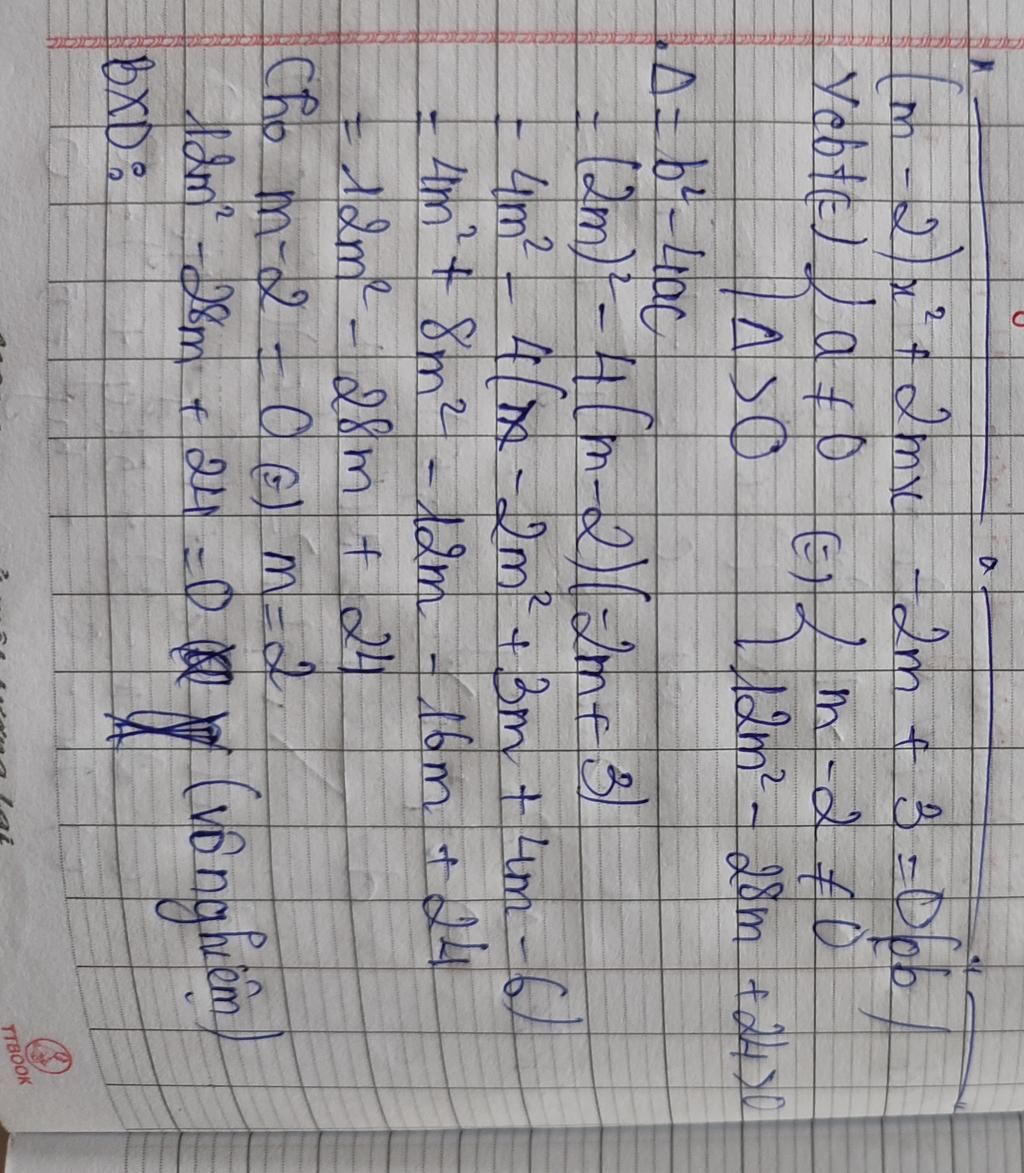 (m - 2)x² + 2mx - 2m + 3 = 0 (pb)
Ycbt (=) { a ≠ 0 (=) { m - 2 ≠ 0
{ Δ > 0 { 12m² - 28m + 24 > 0
Δ = b² - 4ac
= (2m)² - 4(m - 2)(-2m + 3)
= 4m² - 4( - 2m² + 3m + 4m - 6)
= 4m² + 8m² - 12m - 16m + 24
= 12m² - 28m + 24
Cho m - 2 = 0 (=) m = 2
12m² - 28m + 24 = 0 (vô nghiệm)
BXD:
TTBOOK